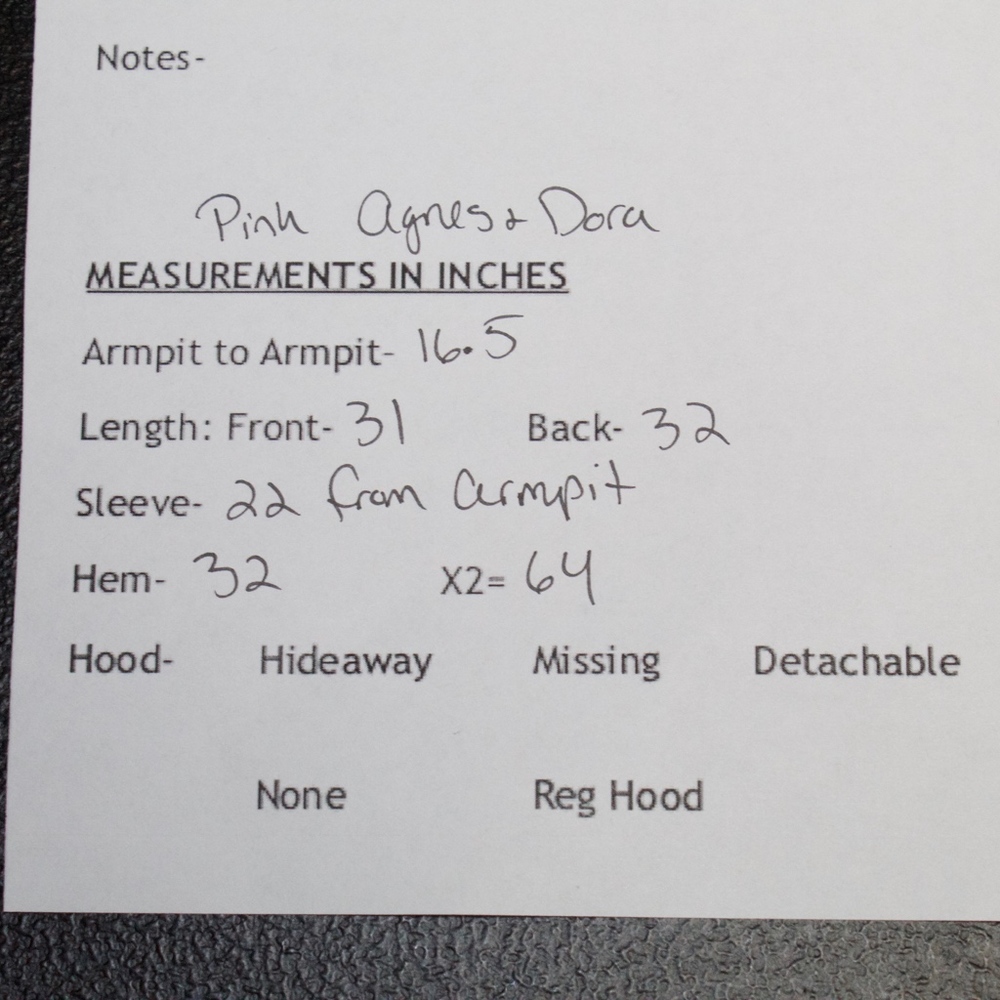 Notes-
Pink Agnes & Dora
MEASUREMENTS IN INCHES
Armpit to Armpit- 16.5
Length: Front- 31 Back- 32
Sleeve- 22 from armpit
Hem- 32 X2= 64
Hood- Hideaway Missing Detachable
None Reg Hood